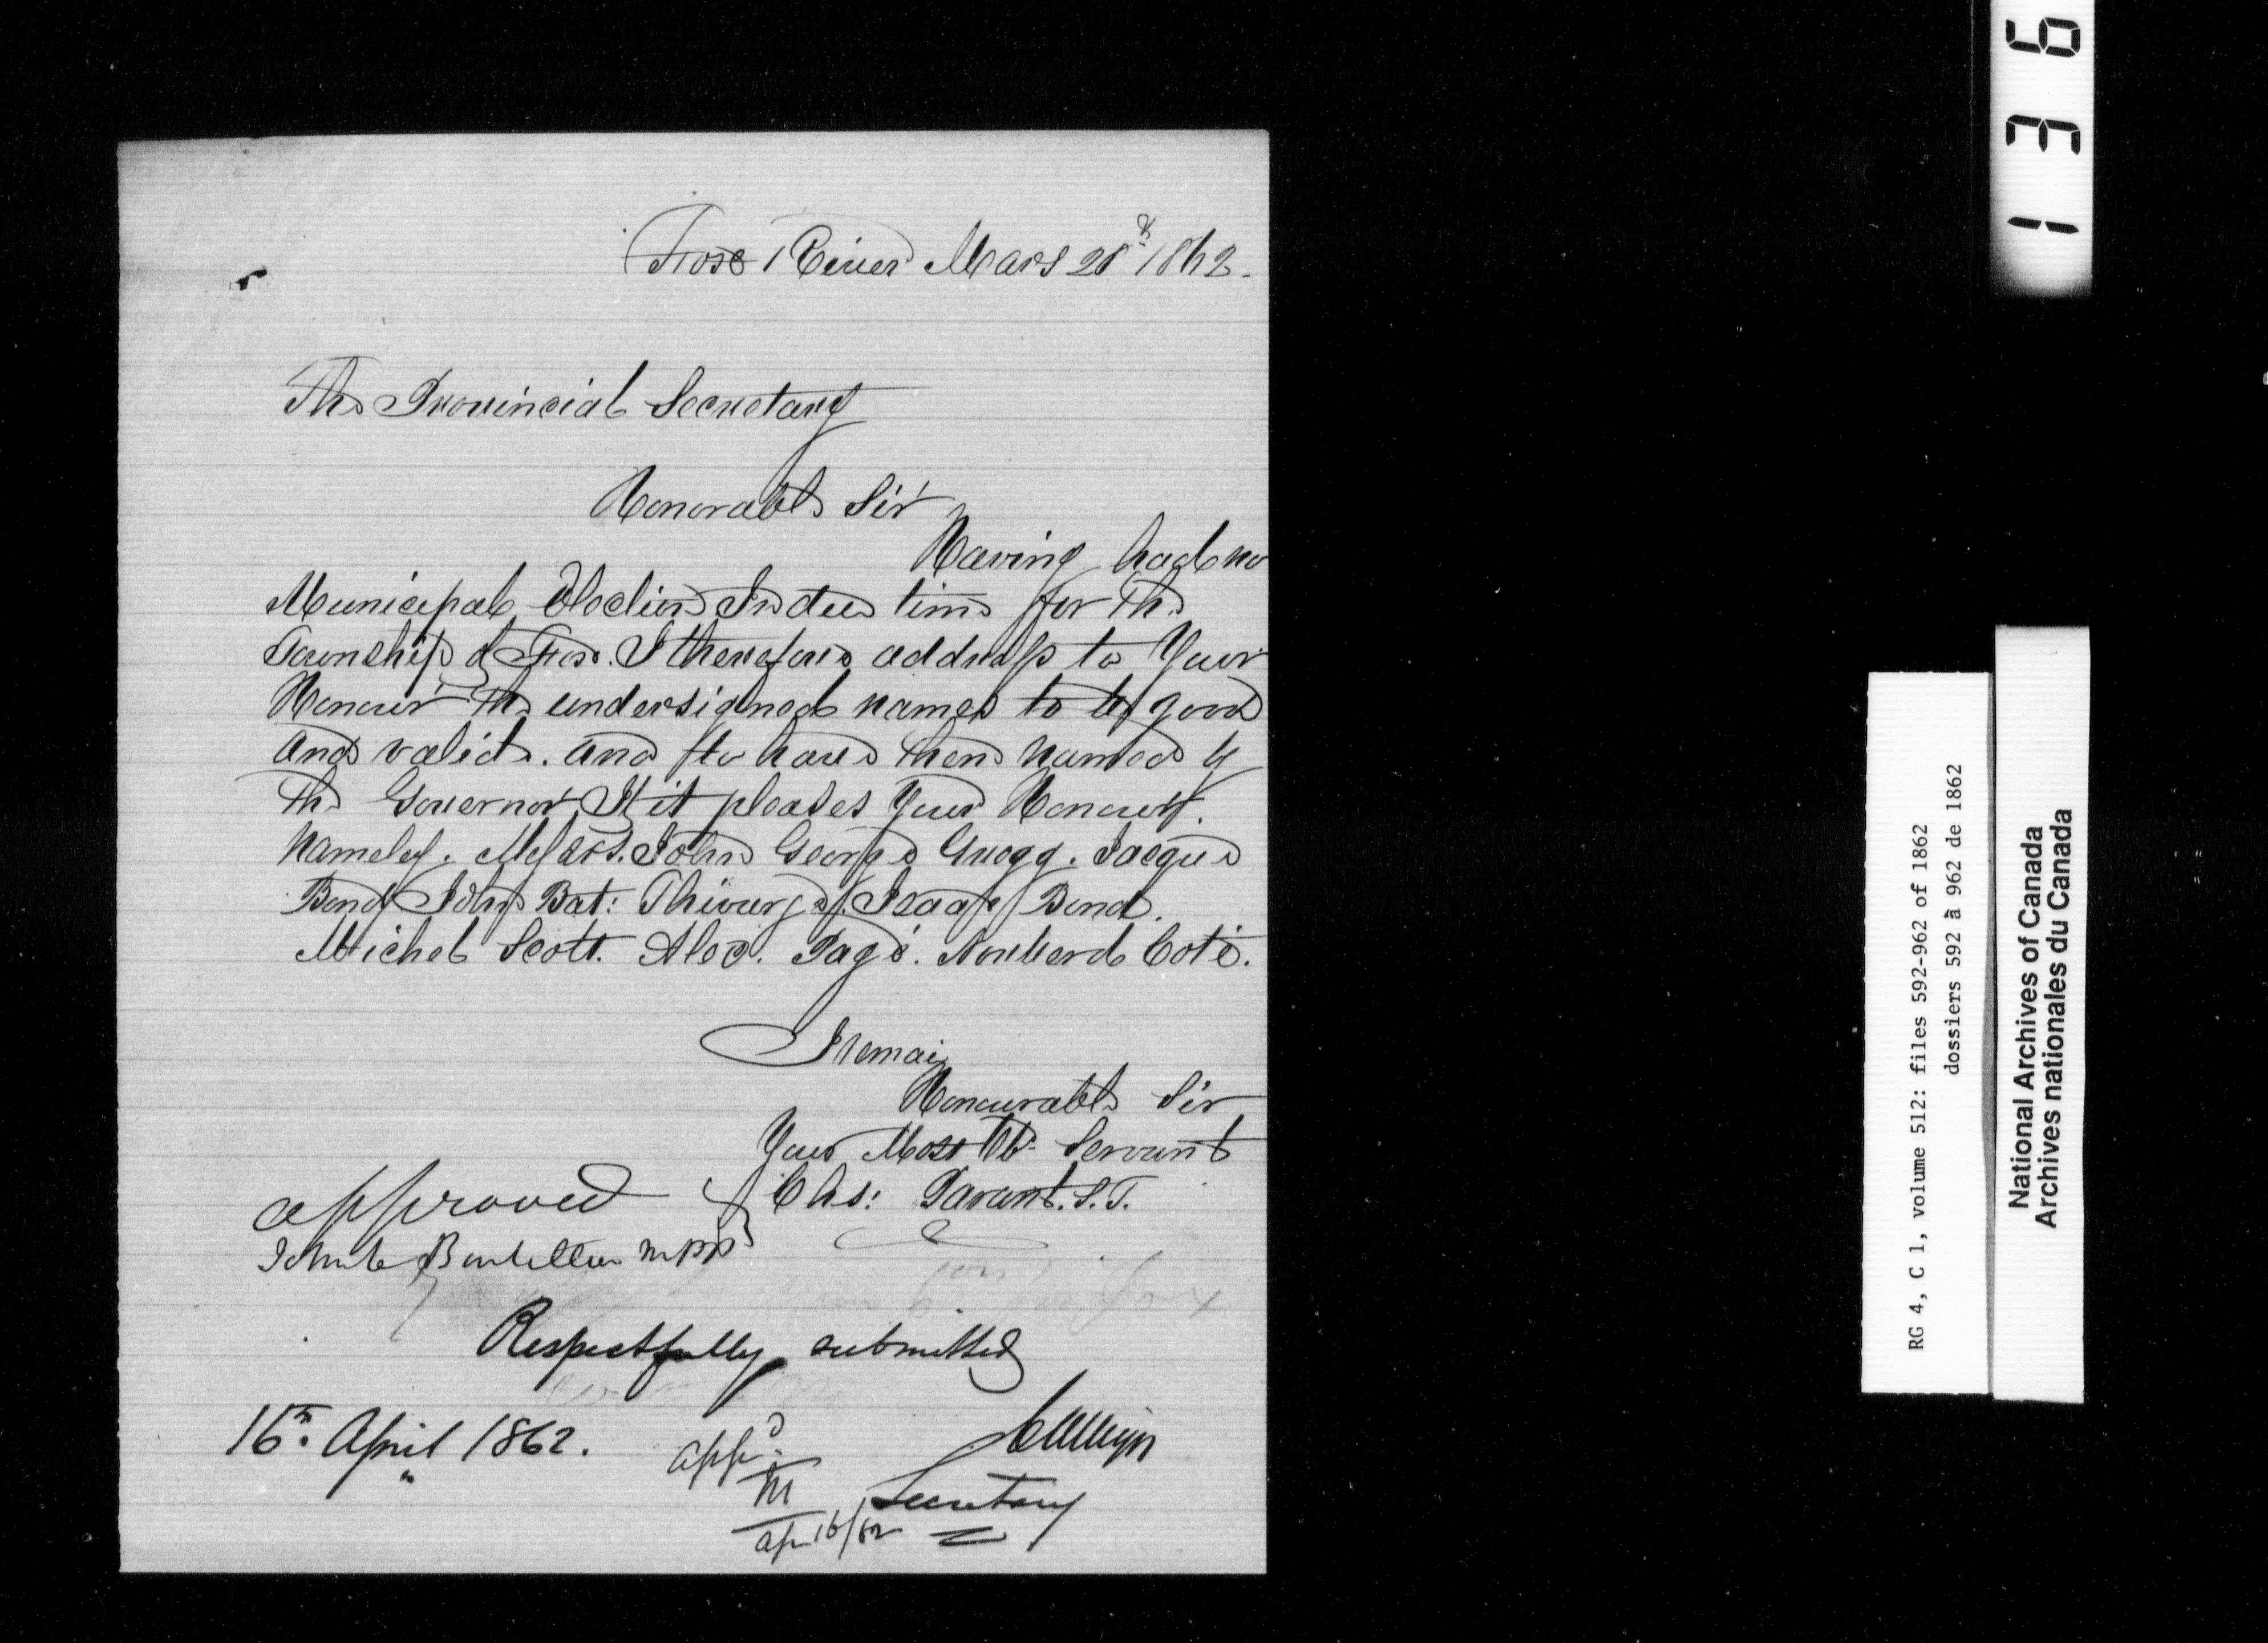 Fox River Mars 28th 1862.
The Provincial Secretary
Honorable Sir
Having had no
Municipal Election In due time for The
Township of Fox. I therefore address to Your
Honour The undersigned names to be good
And valid. and to have them named by
The Governor If it pleases Your Honour.
Namely. Messrs. John George Gregg. Jacque
Bond John Bat: Thivierge Isaac Bond.
Michel Scott. Alex. Pagé. Norberd Coté.
I remain
Honourable Sir
Your Most Ob. Servant
Chs: Parant. S. T.
approved
John Le Boutillier MPP
Respectfully submitted
16th April 1862.
Appd
M
Secretary
Ap 16/62
136
RG 4, C 1, volume 512: files 592-962 of 1862
dossiers 592 à 962 de 1862
National Archives of Canada
Archives nationales du Canada